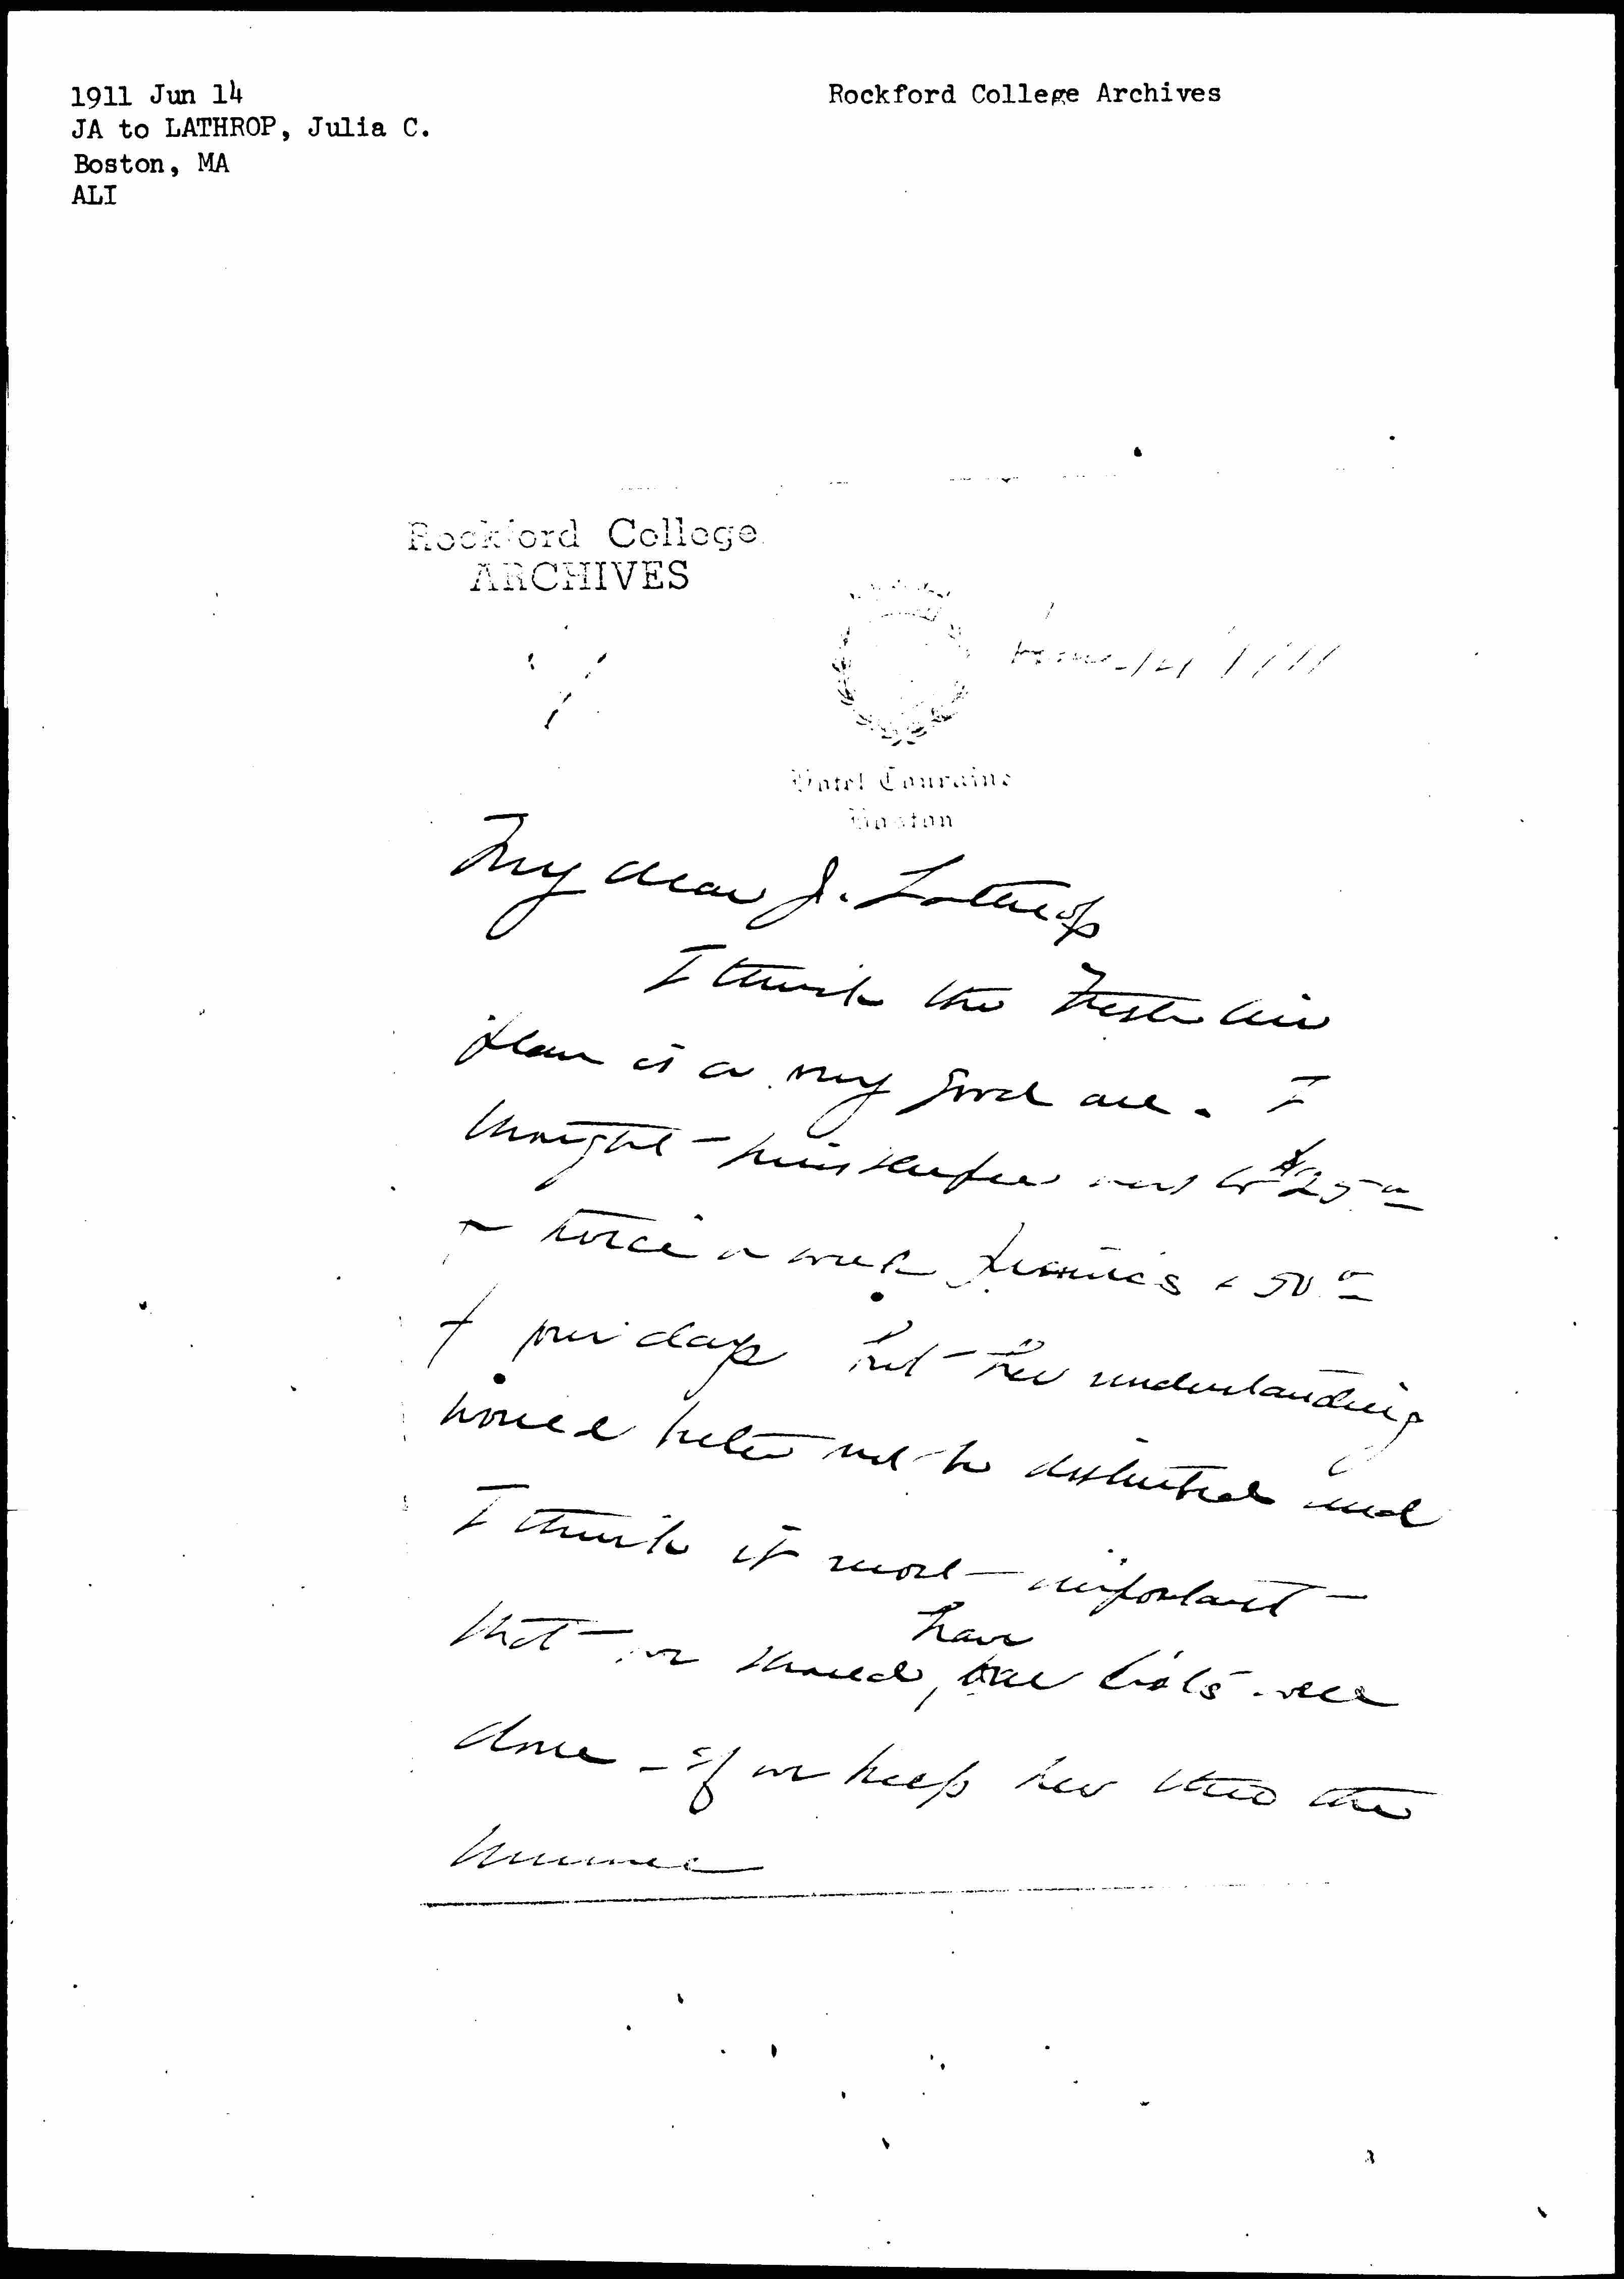 1911 Jun 14
JA to LATHROP, Julia C.
Boston, MA
ALI
Rockford College Archives
Rockford College
ARCHIVES
Hotel Touraine
Boston
My dear J. Lathrop
I think the Fresh air
plan is a very good one. I
thought
twice a week
days but her understanding
would better not be disturbed and
I think it most important
that we should have
done - if we keep her thro the
summer